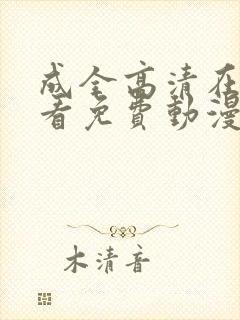 成全高清在
看免費動漫
木清音